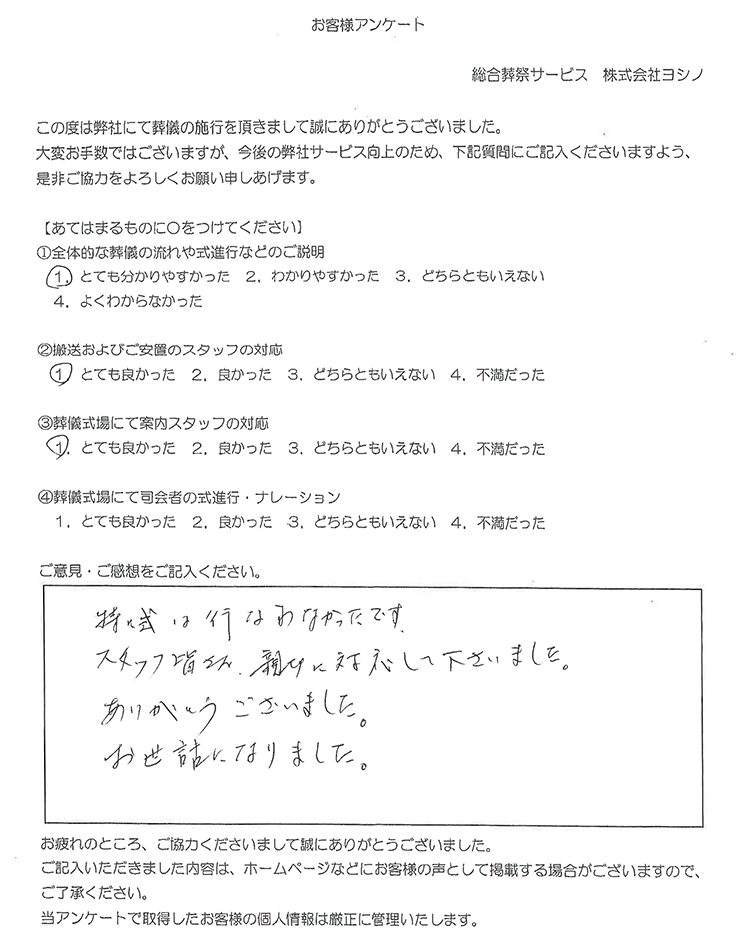 お客様アンケート
総合葬祭サービス　株式会社ヨシノ
この度は弊社にて葬儀の施行を頂きまして誠にありがとうございました。
大変お手数ではございますが、今後の弊社サービス向上のため、下記質問にご記入くださいますよう、
是非ご協力をよろしくお願い申しあげます。
【あてはまるものに〇をつけてください】
①全体的な葬儀の流れや式進行などのご説明
1．とても分かりやすかった　2．わかりやすかった　3．どちらともいえない
4．よくわからなかった
②搬送およびご安置のスタッフの対応
1．とても良かった　2．良かった　3．どちらともいえない　4．不満だった
③葬儀式場にて案内スタッフの対応
1．とても良かった　2．良かった　3．どちらともいえない　4．不満だった
④葬儀式場にて司会者の式進行・ナレーション
1．とても良かった　2．良かった　3．どちらともいえない　4．不満だった
ご意見・ご感想をご記入ください。
特に式は行なわなかったです。
スタッフ皆さん、親切に対応して下さいました。
ありがとうございました。
お世話になりました。
お疲れのところ、ご協力くださいまして誠にありがとうございました。
ご記入いただきました内容は、ホームページなどにお客様の声として掲載する場合がございますので、
ご了承ください。
当アンケートで取得したお客様の個人情報は厳正に管理いたします。